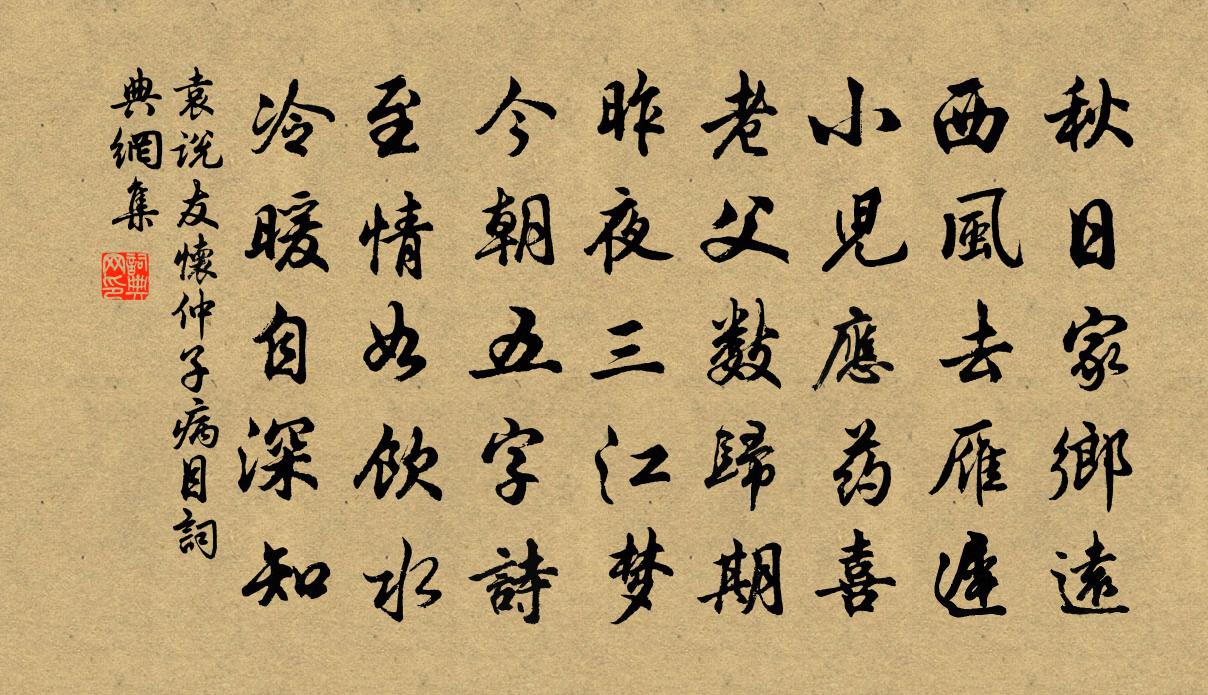 秋日家鄉遠
西風去雁遲
小兒應药喜
老父數歸期
昨夜三江梦
今朝五字詩
至情如飲水
冷暖自深知
袁说友懷仲子病目詞
典網集
詞典
网印